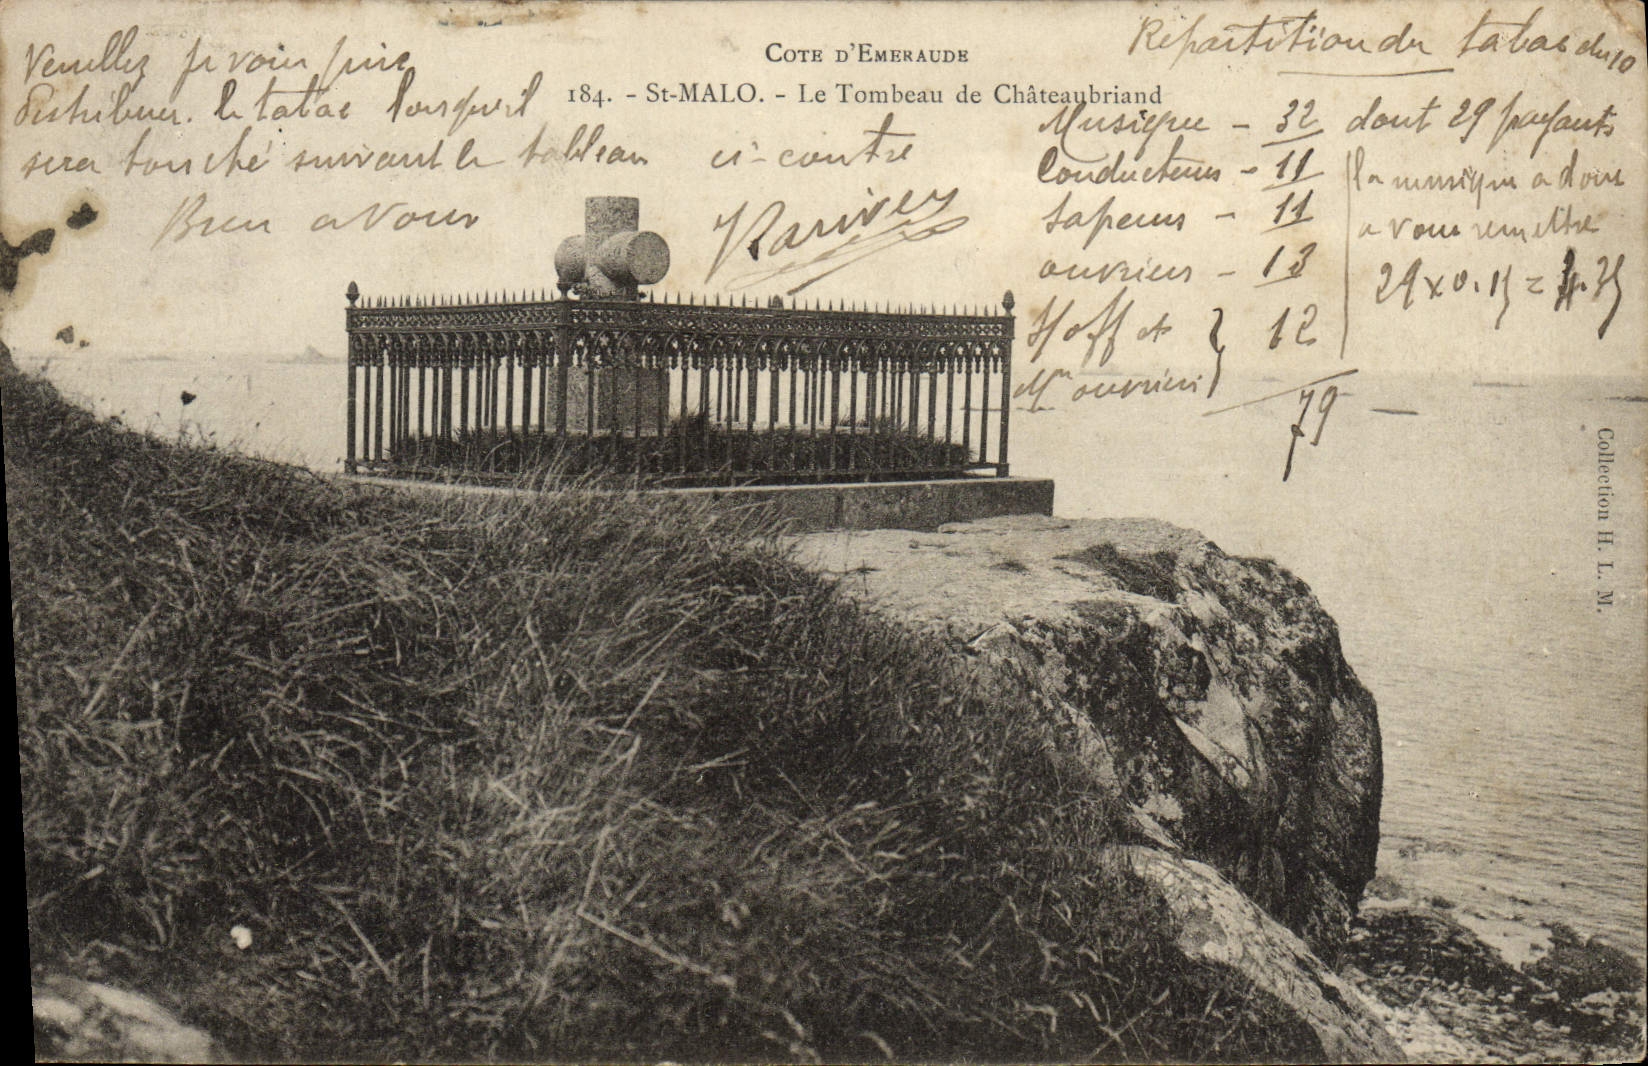 COTE D'EMERAUDE
184. - St-MALO. - Le Tombeau de Châteaubriand
Veuillez je vous prie
distribuer. le tabac lorsqu'il
sera touché suivant le tableau ci-contre
Bien à vous
Répartition du tabac du 10
Musique - 32 dont 29 payants
Conducteurs - 11
Sapeurs - 11
ouvriers - 13
12
ouvriers
79 -
la musique a donc
a vous remettre
29 x 0.15 = 4.35
Collection H. L. M.